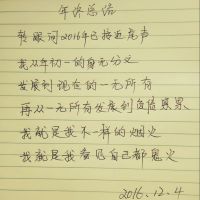 年终总结
转眼间2016年已接近尾声
我从年初一的身无分文
发展到现在的一无所有
再从一无所有发展到百倍恩累
我就是我不一样的烟火
我就是我看见自己都恼火
2016.12.4